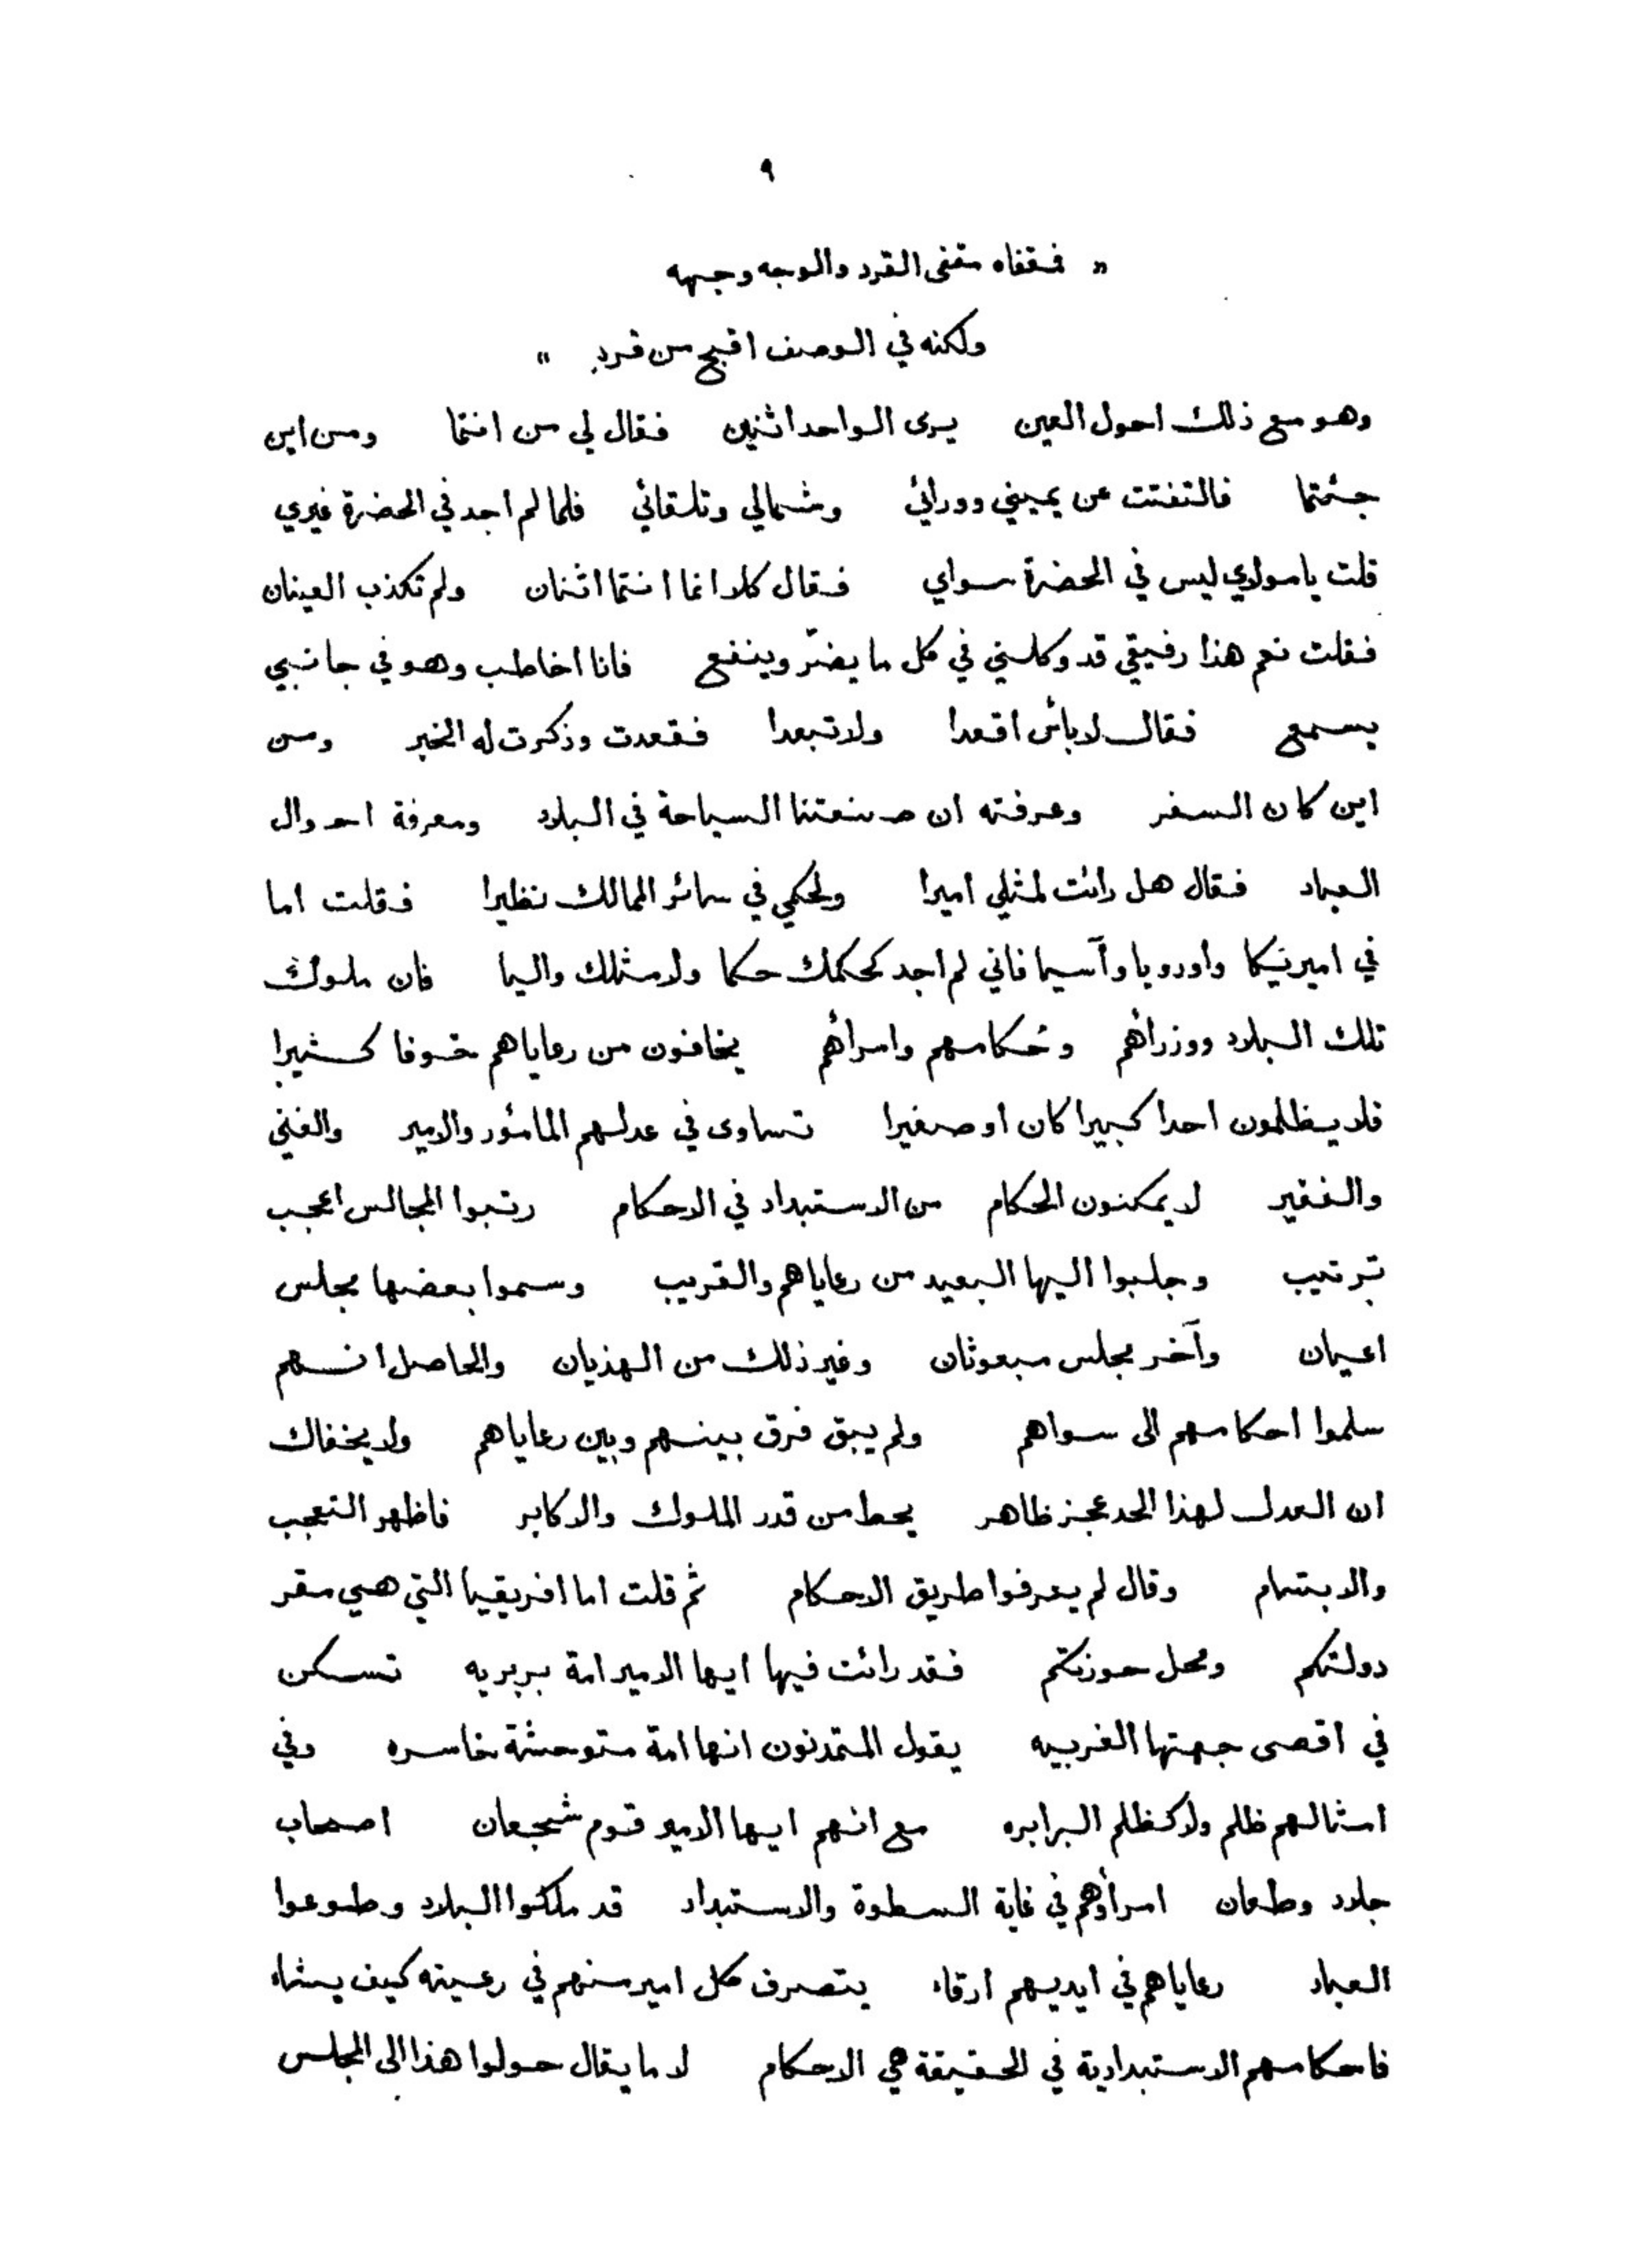 ٩
" فقفاه مقفى القرد والوجه وجهه
ولكنه في الوصف اقبح من قرد "
وهو مع ذلك احول العين يرى الواحد اثنين فقال لي من انتما ومن اين
جئتما فالتفتت عن يميني وورائي وشمالي وتلقائي فلما لم اجد في الحضرة غيري
قلت يا مولاي ليس في الحضرة سواي فقال كلا انما انتما اثنان ولم تكذب العينان
فقلت نعم هذا رفيقي قد وكلني في كل ما يضرّ وينفع فانا اخاطب وهو في جانبي
يسمع فقال لا بأس اقعدا ولا تبعدا فقعدت وذكرت له الخبر ومن
اين كان السفر وعرفته ان صنعتنا السياحة في البلاد ومعرفة احوال
العباد فقال هل رائت لمثلي اميرا ولحكمي في سائر الممالك نظيرا فقلت اما
في اميريكا واوروبا وآسيا فاني لم اجد كحكمك حكما ولا مثلك واليا فان ملوك
تلك البلاد ووزرأهم وحكامهم وامرأهم يخافون من رعاياهم خوفا كثيرا
فلا يظلمون احدا كبيرا كان او صغيرا تساوى في عدلهم المأمور والامير والغني
والفقير لا يمكنون الحكام من الاستبداد في الاحكام رتبوا المجالس اعجب
ترتيب وجلبوا اليها البعيد من رعاياهم والقريب وسموا بعضها مجلس
اعيان وآخر مجلس مبعوثان وغير ذلك من الهذيان والحاصل انهم
سلموا احكامهم الى سواهم ولم يبق فرق بينهم وبين رعاياهم ولا يخفاك
ان العدل لهذا الحد عجز ظاهر يحط من قدر الملوك والاكابر فاظهر التعجب
والابتسام وقال لم يعرفوا طريق الاحكام ثم قلت اما افريقيا التي هي مقر
دولتكم ومحل حوزتكم فقد رائت فيها ايها الامير امة بربريه تسكن
في اقصى جهتها الغربيه يقول المتمدنون انها امة متوحشة خاسره وفي
امثالهم ظلم ولا كظلم البرابره مع انهم ايها الامير قوم شجعان اصحاب
جلاد وطعان امراؤهم في غاية السطوة والاستبداد قد ملكوا البلاد وطوعوا
العباد رعاياهم في ايديهم ارقاء يتصرف كل امير منهم في رعيته كيف يشاء
فاحكامهم الاستبدادية في الحقيقة هي الاحكام لا ما يقال حولوا هذا الى المجلس